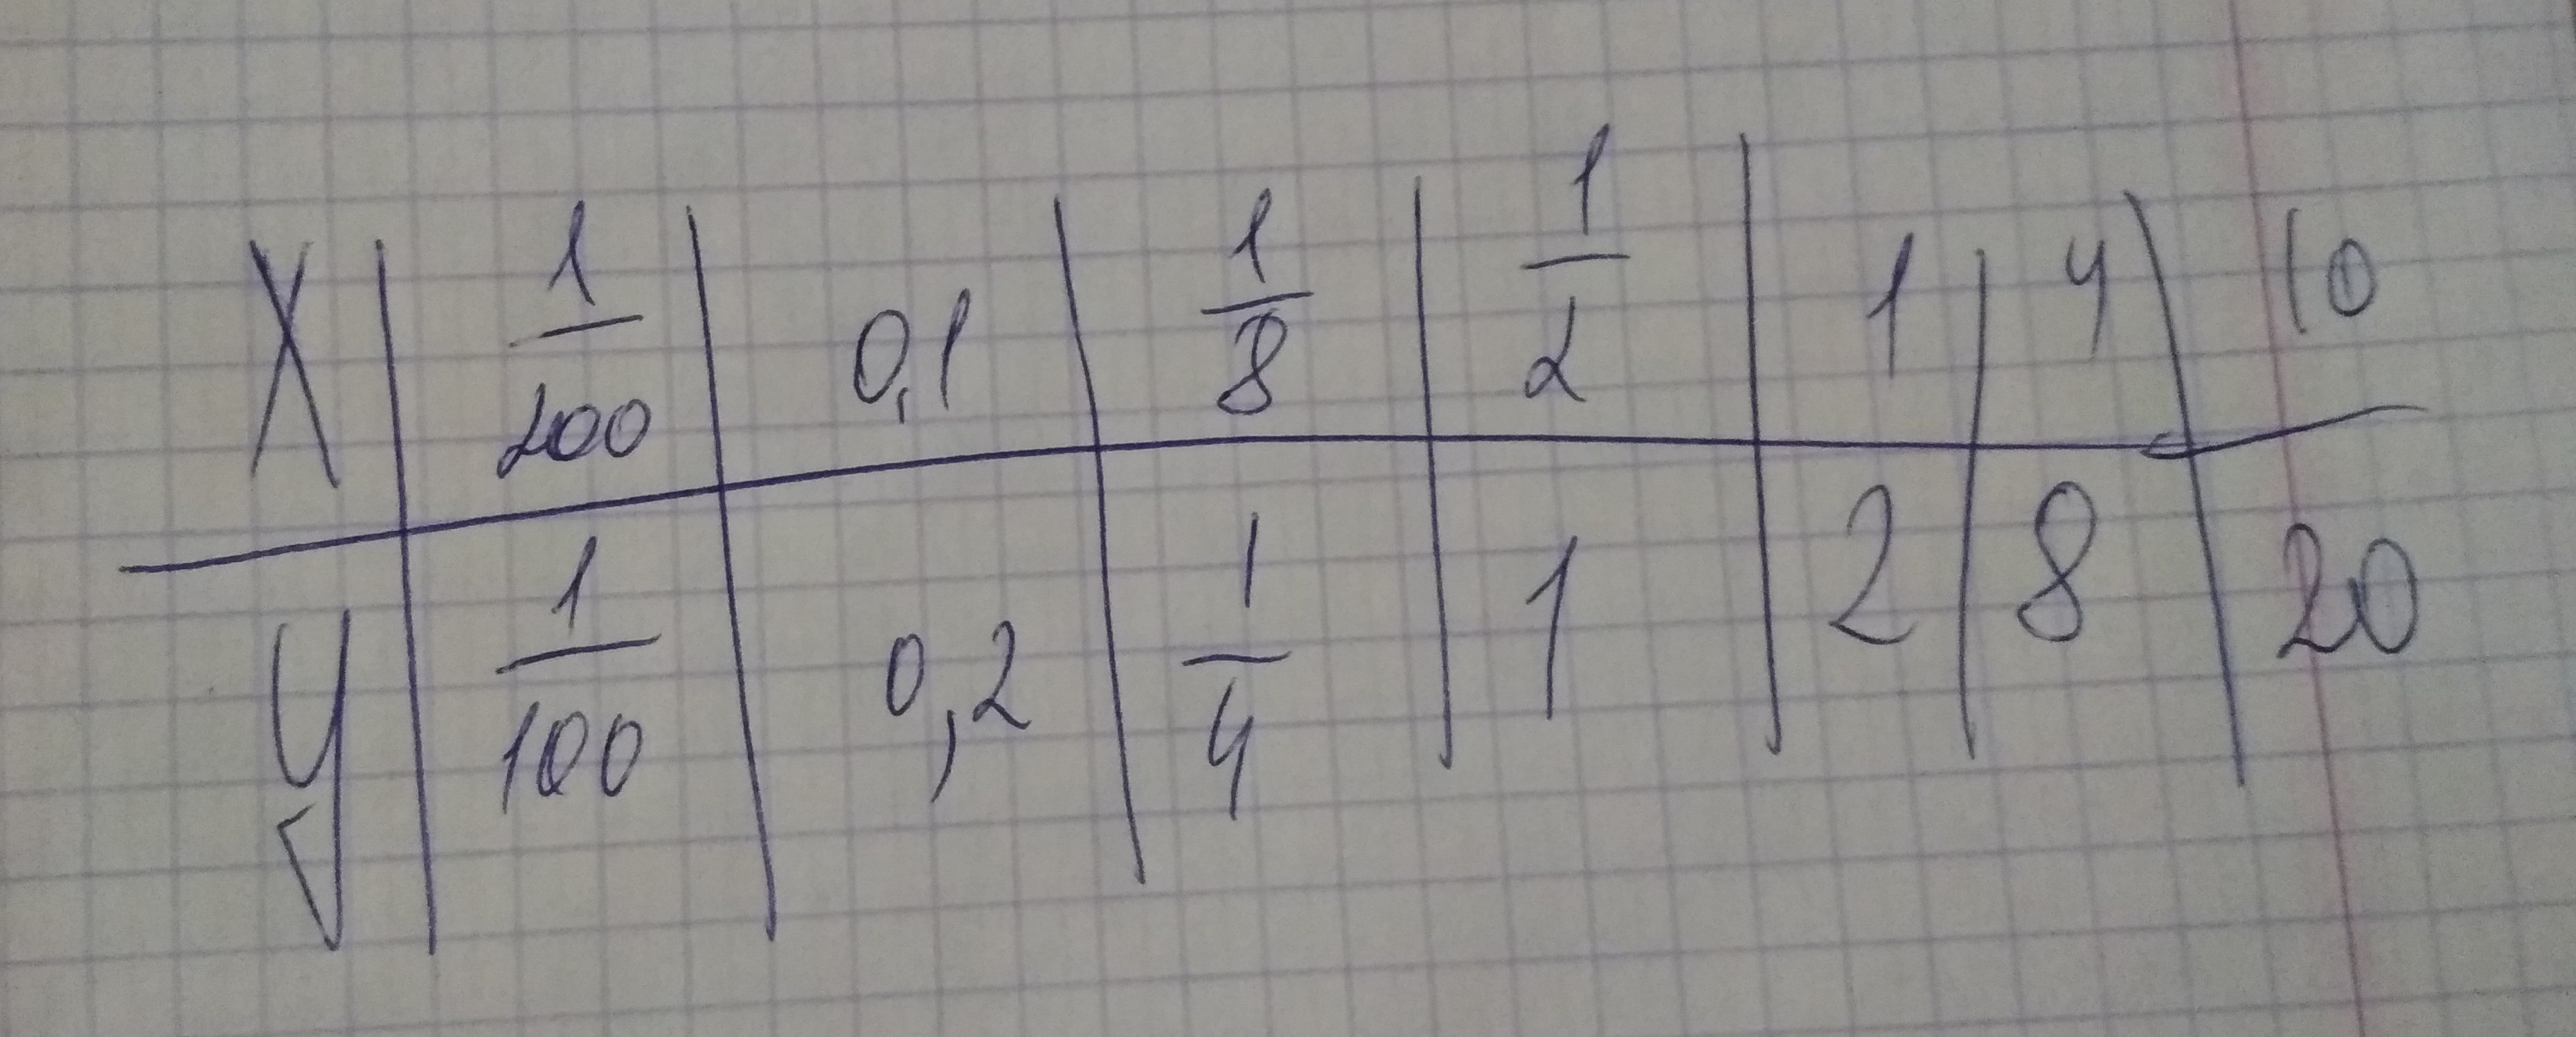 X | 1/200 | 0,1 | 1/8 | 1/2 | 1 | 4 | 10
y | 1/100 | 0,2 | 1/4 | 1 | 2 | 8 | 20